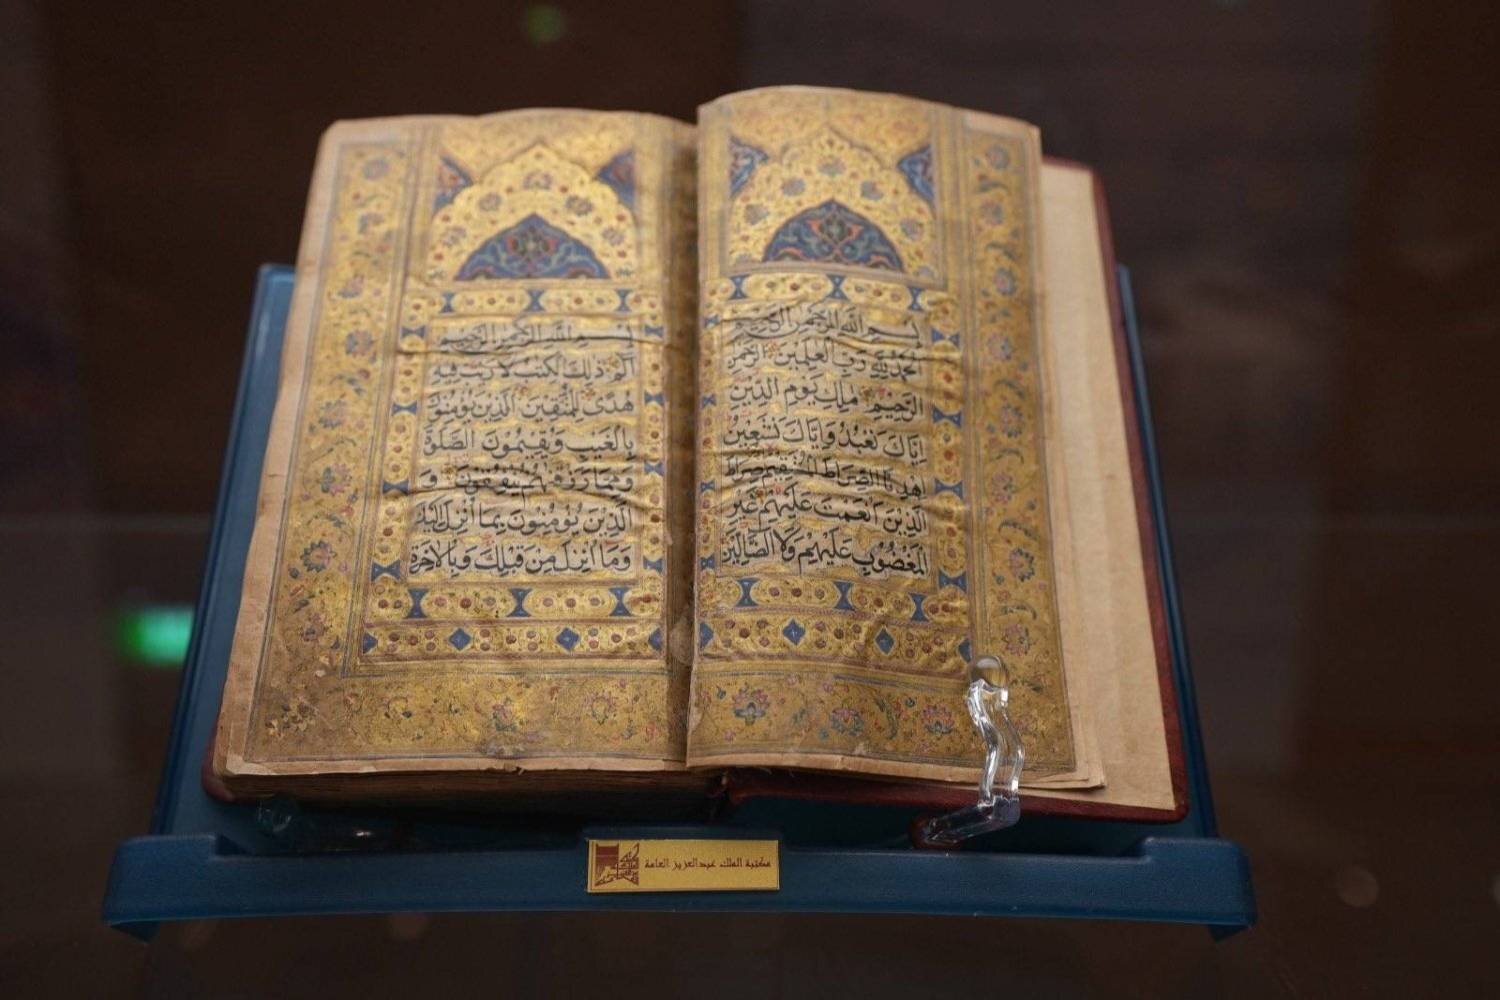 بِسْمِ اللَّهِ الرَّحْمَنِ الرَّحِيمِ
الْحَمْدُ لِلَّهِ رَبِّ الْعٰلَمِينَ الرَّحْمٰنِ
الرَّحِيمِ مٰلِكِ يَوْمِ الدِّينِ
إِيَّاكَ نَعْبُدُ وَإِيَّاكَ نَسْتَعِينُ
اهْدِنَا الصِّرَاطَ الْمُسْتَقِيمَ صِرَاطَ
الَّذِينَ أَنْعَمْتَ عَلَيْهِمْ غَيْرِ
الْمَغْضُوبِ عَلَيْهِمْ وَلَا الضَّالِّينَ
بِسْمِ اللَّهِ الرَّحْمَنِ الرَّحِيمِ
الٓمٓ ذٰلِكَ الْكِتٰبُ لَا رَيْبَ فِيهِ
هُدًى لِلْمُتَّقِينَ الَّذِينَ يُؤْمِنُونَ
بِالْغَيْبِ وَيُقِيمُونَ الصَّلٰوةَ
وَمِمَّا رَزَقْنٰهُمْ يُنْفِقُونَ وَ
الَّذِينَ يُؤْمِنُونَ بِمَا أُنْزِلَ إِلَيْكَ
وَمَا أُنْزِلَ مِنْ قَبْلِكَ وَبِالْآخِرَةِ
مكتبة الملك عبدالعزيز العامة